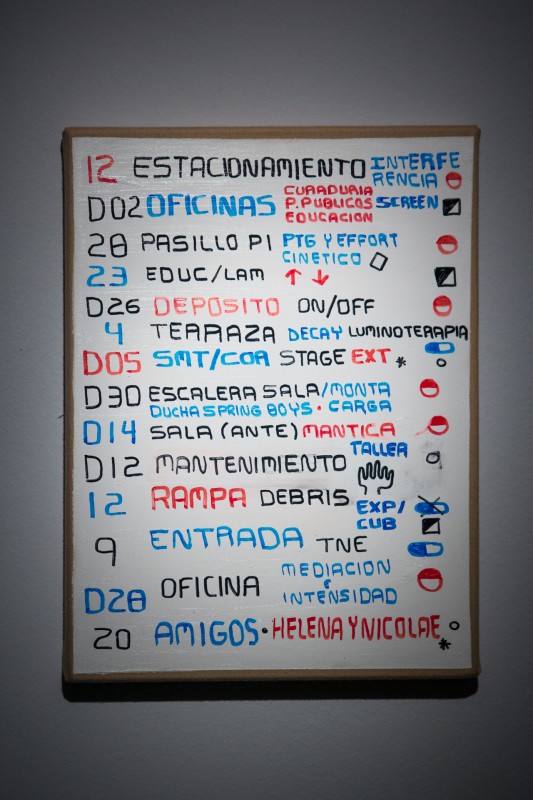 12 ESTACIONAMIENTO INTERFE
RENCIA
CURADURIA
D02 OFICINAS P.PUBLICOS SCREEN
EDUCACION
28 PASILLO P1 PTG Y EFFORT
CINETICO
23 EDUC/LAM ↑ ↓
D26 DEPOSITO ON/OFF
4 TERRAZA DECAY LUMINOTERAPIA
D05 SMT/COA STAGE EXT *
D30 ESCALERA SALA/MONTA
DUCHA SPRING BOYS · CARGA
D14 SALA (ANTE) MANTICA
TALLER
D12 MANTENIMIENTO
12 RAMPA DEBRIS
EXP/
CUB
9 ENTRADA TNE
MEDIACION
D28 OFICINA E
INTENSIDAD
20 AMIGOS · HELENA Y NICOLAE *